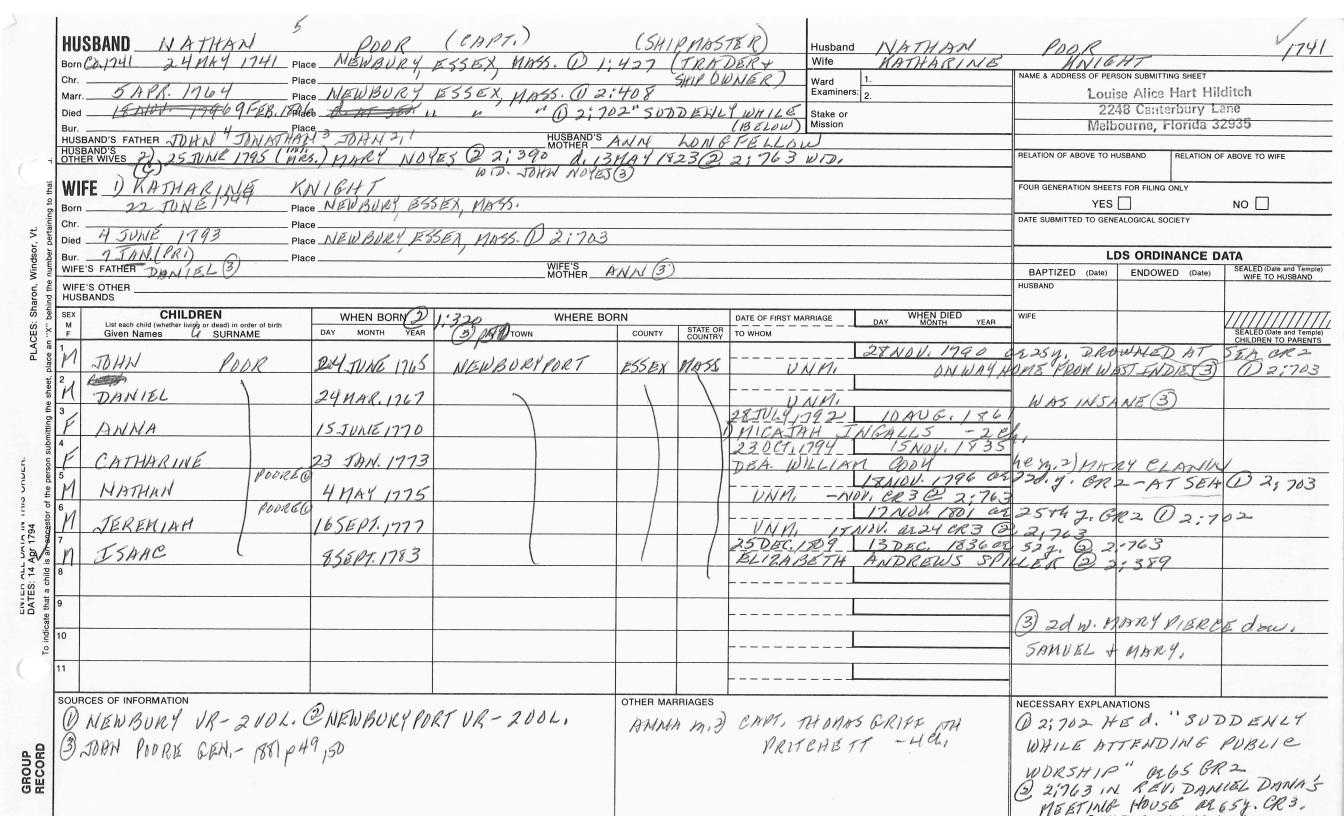 5
HUSBAND NATHAN POOR (CAPT.) (SHIPMASTER)
Born Ca.1741 24 MAY 1741 Place NEWBURY, ESSEX, MASS. ① 1:427 (TRADER + SHIP OWNER)
Chr. Place
Marr. 5 APR. 1764 Place NEWBURY ESSEX, MASS. ① 2:408
Died 9 FEB. Place " " " ① 2:702 "SUDDENLY WHILE (BELOW)
Bur. Place
HUSBAND'S FATHER JOHN 4 JONATHAN 3 JOHN 2, 1 HUSBAND'S MOTHER ANN LONGFELLOW
HUSBAND'S OTHER WIVES 2) 25 JUNE 1795 (MRS.) MARY NOYES ② 2:390 d. 13 MAY 1823 ② 2:763 WID.
WID. JOHN NOYES ③
WIFE 1) KATHARINE KNIGHT
Born 22 JUNE 1744 Place NEWBURY, ESSEX, MASS.
Chr. Place
Died 4 JUNE 1793 Place NEWBURY, ESSEX, MASS. ① 2:703
Bur. 7 JAN. (PRI) Place
WIFE'S FATHER DANIEL ③ WIFE'S MOTHER ANN ③
WIFE'S OTHER HUSBANDS
Husband NATHAN POOR 1741
Wife KATHARINE KNIGHT
Ward Examiners: 1. 2.
Stake or Mission
NAME & ADDRESS OF PERSON SUBMITTING SHEET
Louise Alice Hart Hilditch
2248 Canterbury Lane
Melbourne, Florida 32935
RELATION OF ABOVE TO HUSBAND RELATION OF ABOVE TO WIFE
FOUR GENERATION SHEETS FOR FILING ONLY
YES NO
DATE SUBMITTED TO GENEALOGICAL SOCIETY
LDS ORDINANCE DATA
BAPTIZED (Date) ENDOWED (Date) SEALED (Date and Temple) WIFE TO HUSBAND
HUSBAND
WIFE
SEALED (Date and Temple) CHILDREN TO PARENTS
SEX M F CHILDREN WHEN BORN ② 1:320 WHERE BORN DATE OF FIRST MARRIAGE WHEN DIED
List each child (whether living or dead) in order of birth
Given Names SURNAME DAY MONTH YEAR ③ TOWN COUNTY STATE OR COUNTRY TO WHOM DAY MONTH YEAR
1 M JOHN POOR 24 JUNE 1765 NEWBURYPORT ESSEX MASS UNM. 28 NOV. 1790 ae 25y. DROWNED AT SEA GR2
ON WAY HOME FROM WEST INDIES ③ ① 2:703
2 M DANIEL 24 MAR. 1767 UNM. WAS INSANE ③
3 F ANNA 15 JUNE 1770 28 JULY, 1792 10 AUG. 1861
1) MICAJAH INGALLS - 2 ch.
4 F CATHARINE 23 JAN. 1773 23 OCT. 1794 15 NOV. 1835
DEA. WILLIAM he m. 2) MARY
5 M NATHAN POORE 4 MAY 1775 18 NOV. 1796 ae 22d. y. GR2 - AT SEA ① 2:703
UNM. - NOV. CR3 ② 2:763
6 M JEREMIAH POORE 16 SEPT. 1777 17 NOV. 1801 ae 25th y. GR2 ① 2:702
UNM. NOV. ae 24 CR3 ② 2:763
7 M ISAAC 8 SEPT. 1783 25 DEC. 1809 13 DEC. 1836 ae 52y. ② 2:763
ELIZABETH ANDREWS SPILLER ② 2:389
8
9
10
11
③ 2d w. MARY PIERCE dau.
SAMUEL + MARY.
SOURCES OF INFORMATION
① NEWBURY VR - 2 VOL. ② NEWBURYPORT VR - 2 VOL.
③ JOHN POORE GEN. - 1881 p 49, 50
OTHER MARRIAGES
ANNA m. 2) CAPT. THOMAS
PRITCHETT - 4 ch.
NECESSARY EXPLANATIONS
① 2:702 HE d. "SUDDENLY
WHILE ATTENDING PUBLIC
WORSHIP" ae 65 GR2
② 2:763 IN REV. DANIEL DANA'S
MEETING HOUSE ae 65y. CR3.
PLACES: Sharon, Windsor, Vt.
ENTER ALL DATA IN THIS ORDER:
DATES: 14 Apr 1794
To indicate that a child is an ancestor of the person submitting the sheet, place an "X" behind the number pertaining to that
GROUP RECORD